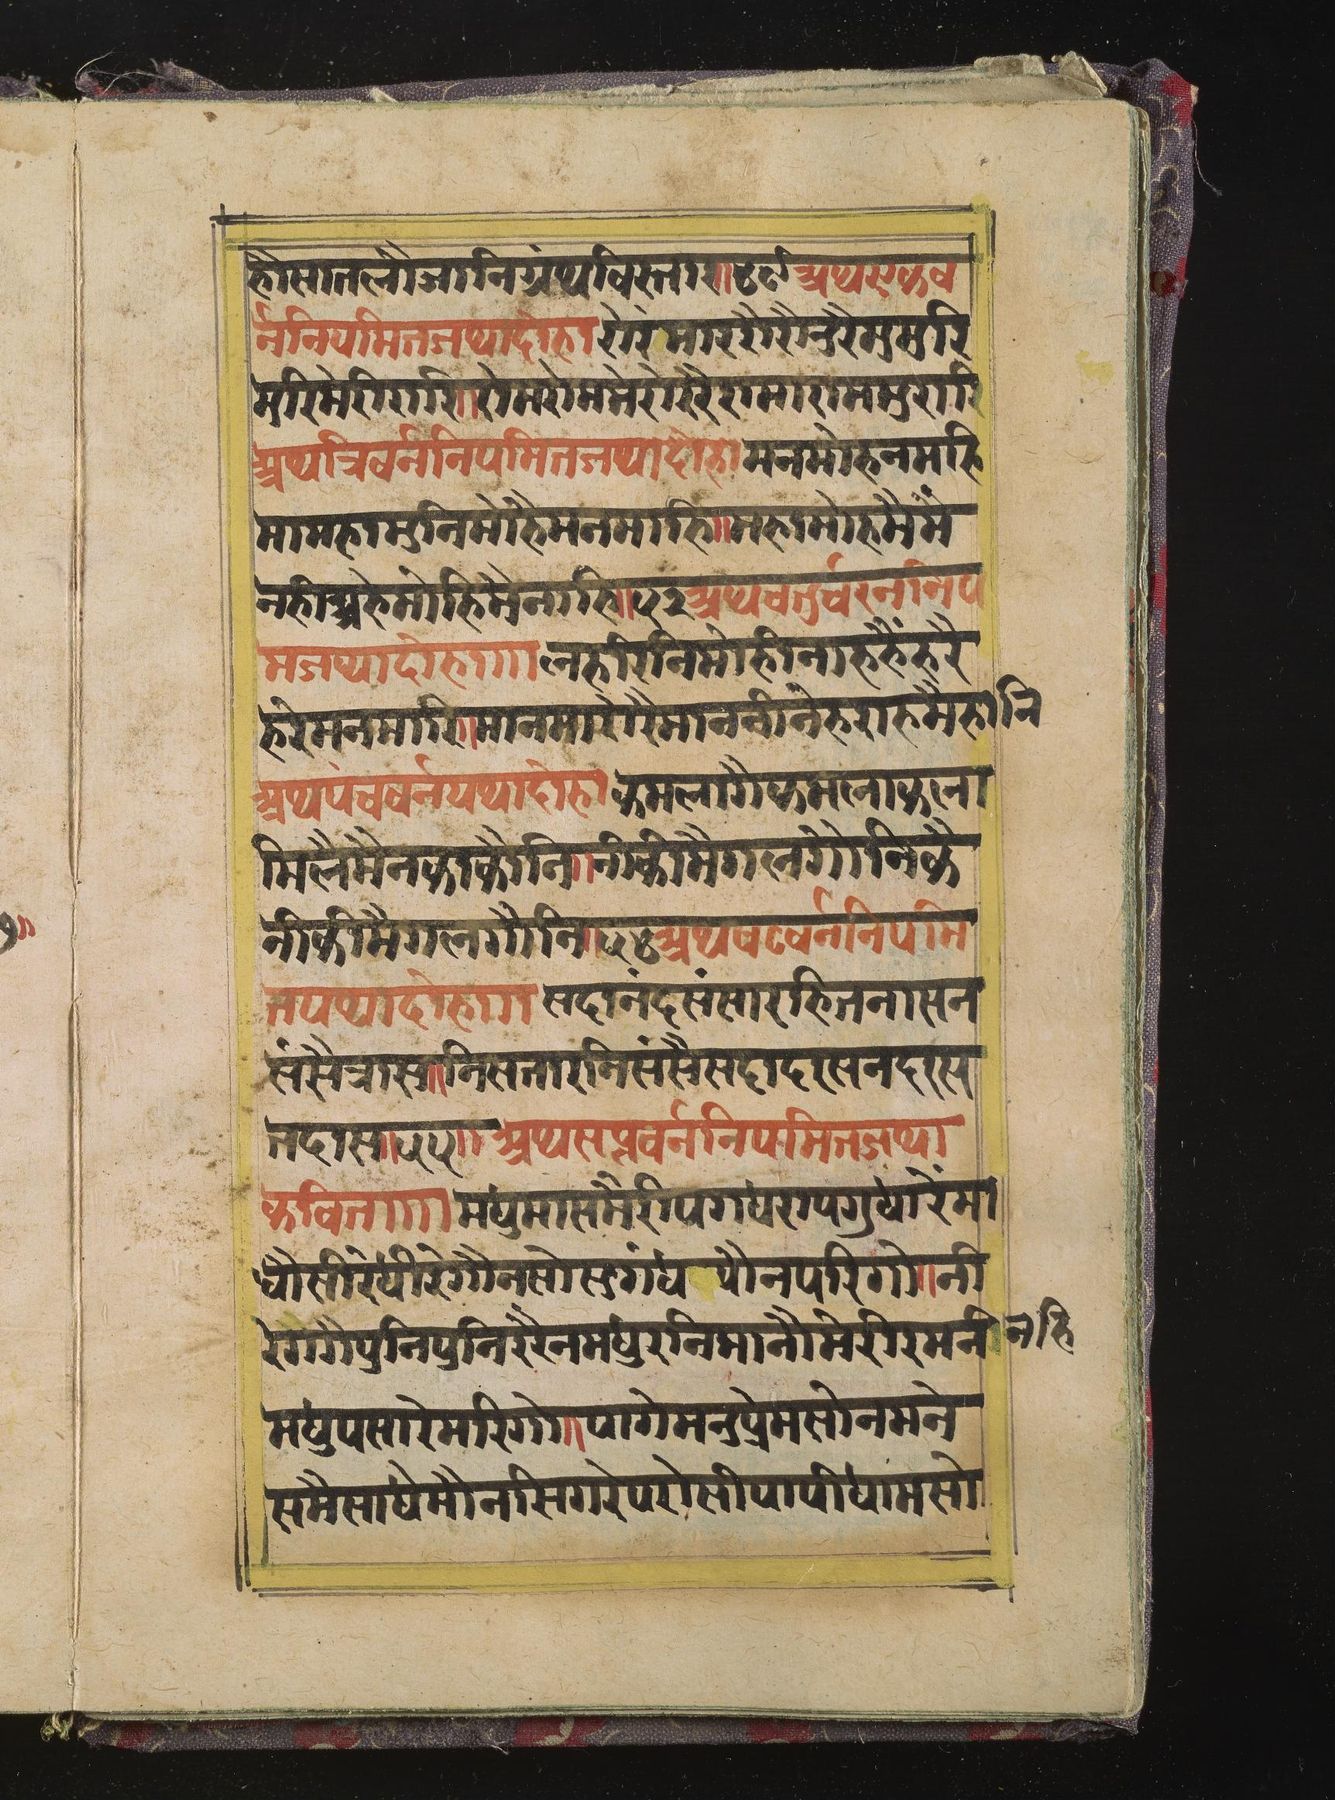 हौसातलौजानिग्रंथविस्तार॥४९अथएकव
र्ननियमितजथादोहा रोरं मारररौरौनुरैमुमुरि
मुरिमेरीरारि॥रोमरोममेरोररैरामारामम्मुरारि
अथत्रिवर्ननियमितजथादोहा मनमोहनमहि
मामहामुनिमोहैमनमाहि॥महामोहमैमैं
नहीअहेमोहिमैनाहि॥५३अथचतुर्वरननिय
मजथादोहा॥॥ नेहरिनिमोहीनाहहैंहरै
हरेमनमारि॥मानमारोरैमाननीनेहराहमैहानि
अथपंचवर्नयथादोहा कमलागैकमलाकला
मिलैमैनकाकौनि॥नीकीमैगलगौनिकै
नीकीमैगलगौनि॥५४अथषटवर्ननियमि
तयथादोहा॥॥ सदानंदसंसारहितनासन
संसैत्रास॥निसतारनिसंसैसदादासनदास
तदास॥५५॥ अथसप्तवर्ननियमितजथा
कवित॥॥ मधुमासमैरीपगधरापगुधारेंमा
धौसीरेधीरेगौनसोसुगंध पौनपरिगो॥नी
रेगगैपुनिपुनिररैनमधुरनिमानौमेरीरमनी नहि
मधुपसारेमरिगो॥पागेमनुप्रेमसोनमने
समैसाधेमौनसिगरेपरोसीपापीधामसो